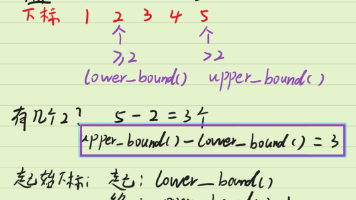 下标 1 2 3 4 5
个 个
≥2 >2
lower_bound() upper_bound()
有几个2? 5-2=3个
upper_bound()-lower_bound()=3
起始下标: 起: lower_bound()